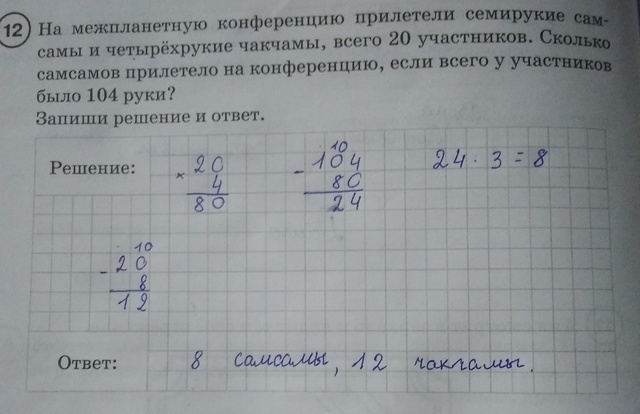 12 На межпланетную конференцию прилетели семирукие сам-
самы и четырёхрукие чакчамы, всего 20 участников. Сколько
самсамов прилетело на конференцию, если всего у участников
было 104 руки?
Запиши решение и ответ.
Решение:
× 20
4
80
10
- 104
80
24
24 · 3 = 8
10
- 20
8
12
Ответ: 8 самсамы, 12 чакчамы.